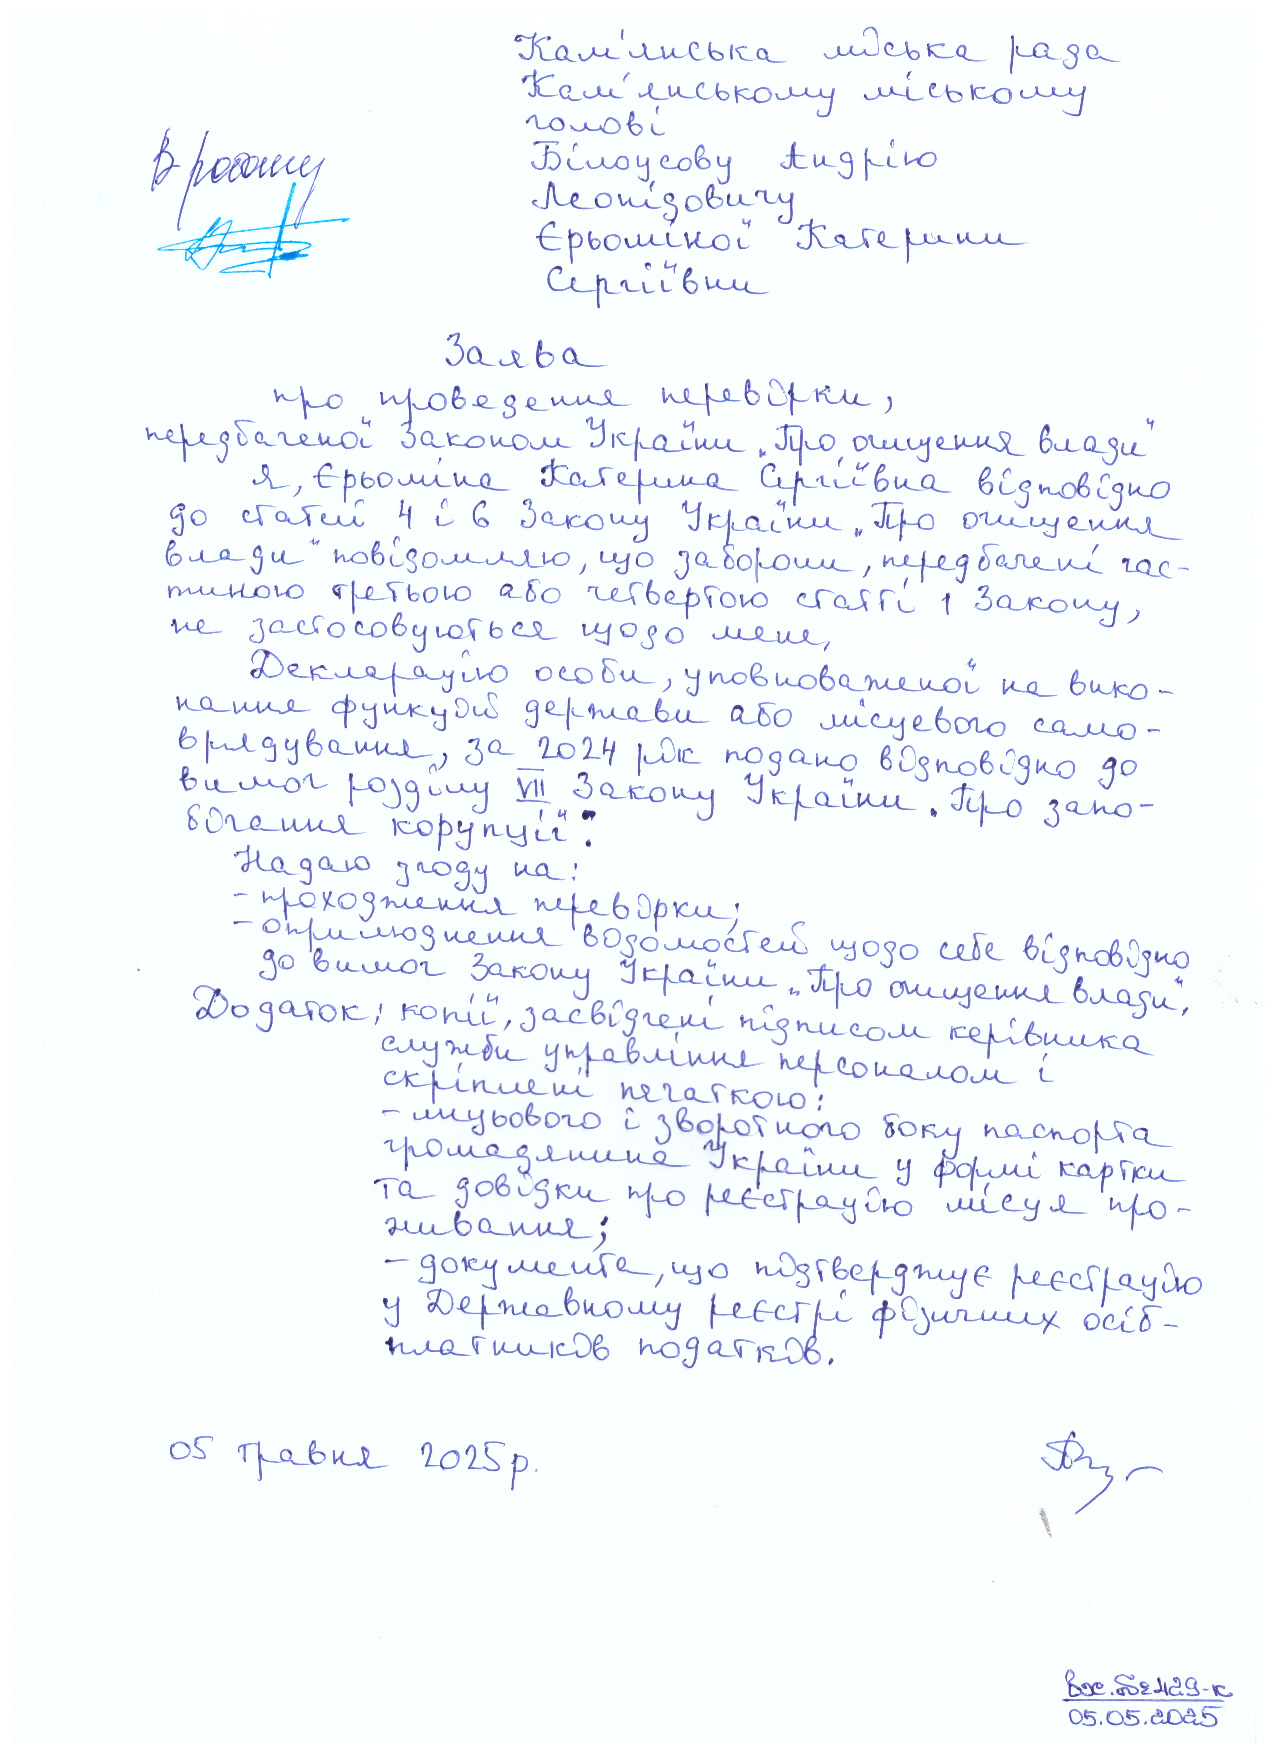 Кам'янська міська рада
Кам'янському міському
голові
Білоусову Андрію
Леонідовичу
Єрьоміної Катерини
Сергіївни
В роботу
Заява
про проведення перевірки,
передбаченої Законом України „Про очищення влади"
Я, Єрьоміна Катерина Сергіївна відповідно
до статей 4 і 6 Закону України „Про очищення
влади" повідомляю, що заборони, передбачені час-
тиною третьою або четвертою статті 1 Закону,
не застосовуються щодо мене.
Декларацію особи, уповноваженої на вико-
нання функцій держави або місцевого само-
врядування, за 2024 рік подано відповідно до
вимог розділу VII Закону України „Про запо-
бігання корупції".
Надаю згоду на:
- проходження перевірки;
- оприлюднення відомостей щодо себе відповідно
до вимог Закону України „Про очищення влади".
Додаток: копії, засвідчені підписом керівника
служби управління персоналом і
скріплені печаткою:
- лицьового і зворотного боку паспорта
громадянина України у формі картки
та довідки про реєстрацію місця про-
живання;
- документа, що підтверджує реєстрацію
у Державному реєстрі фізичних осіб-
платників податків.
05 травня 2025р.
вх.№429-к
05.05.2025